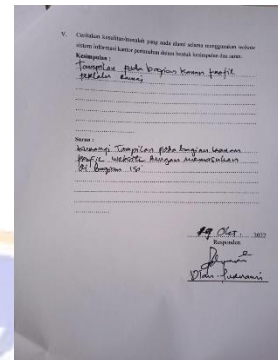 V. Ceritakan kesulitan/masalah yang anda alami selama menggunakan website
sistem informasi kantor pertanahan dalam bentuk kesimpulan dan saran.
Kesimpulan :
Tampilan pada bagian kanan profil
terlalu ramai
Saran :
kurangi Tampilan pada bagian kanan
profil website dengan memasukan
di bagian isi
19 Okt. 2022
Responden